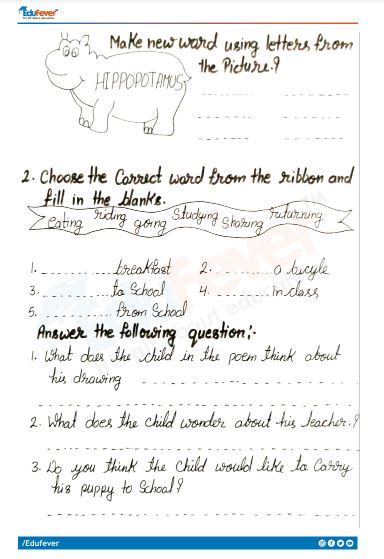 EduFever
It's all about education
Make new word using letters from
the Picture.?
HIPPOPOTAMUS
2. Choose the Correct word from the ribbon and
fill in the blanks.
eating riding going Studying Sharing returning
1. breakfast 2. a bicyle
3. to School 4. in class
5. from School
Answer the following question;-
1. What does the child in the poem think about
his drawing
2. What does the child wonder about his teacher.?
3. Do you think the child would like to Carry
his puppy to School?
/Edufever